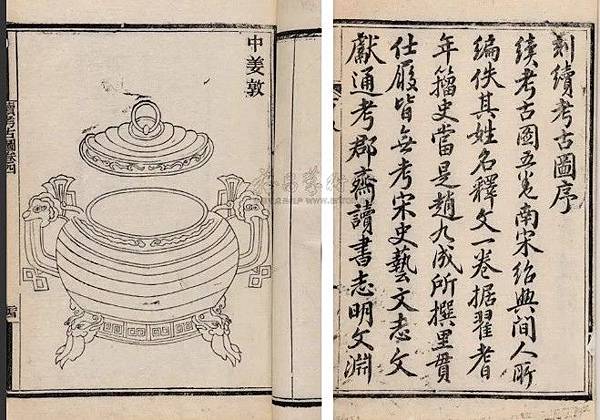 中姜敦
續考古圖卷四
刻續考古圖序
續考古圖五卷南宋紹興間人所
編佚其姓名釋文一卷据翟耆
年籀史當是趙九成所撰里貫
仕履皆無考宋史藝文志文
獻通考郡齋讀書志明文淵